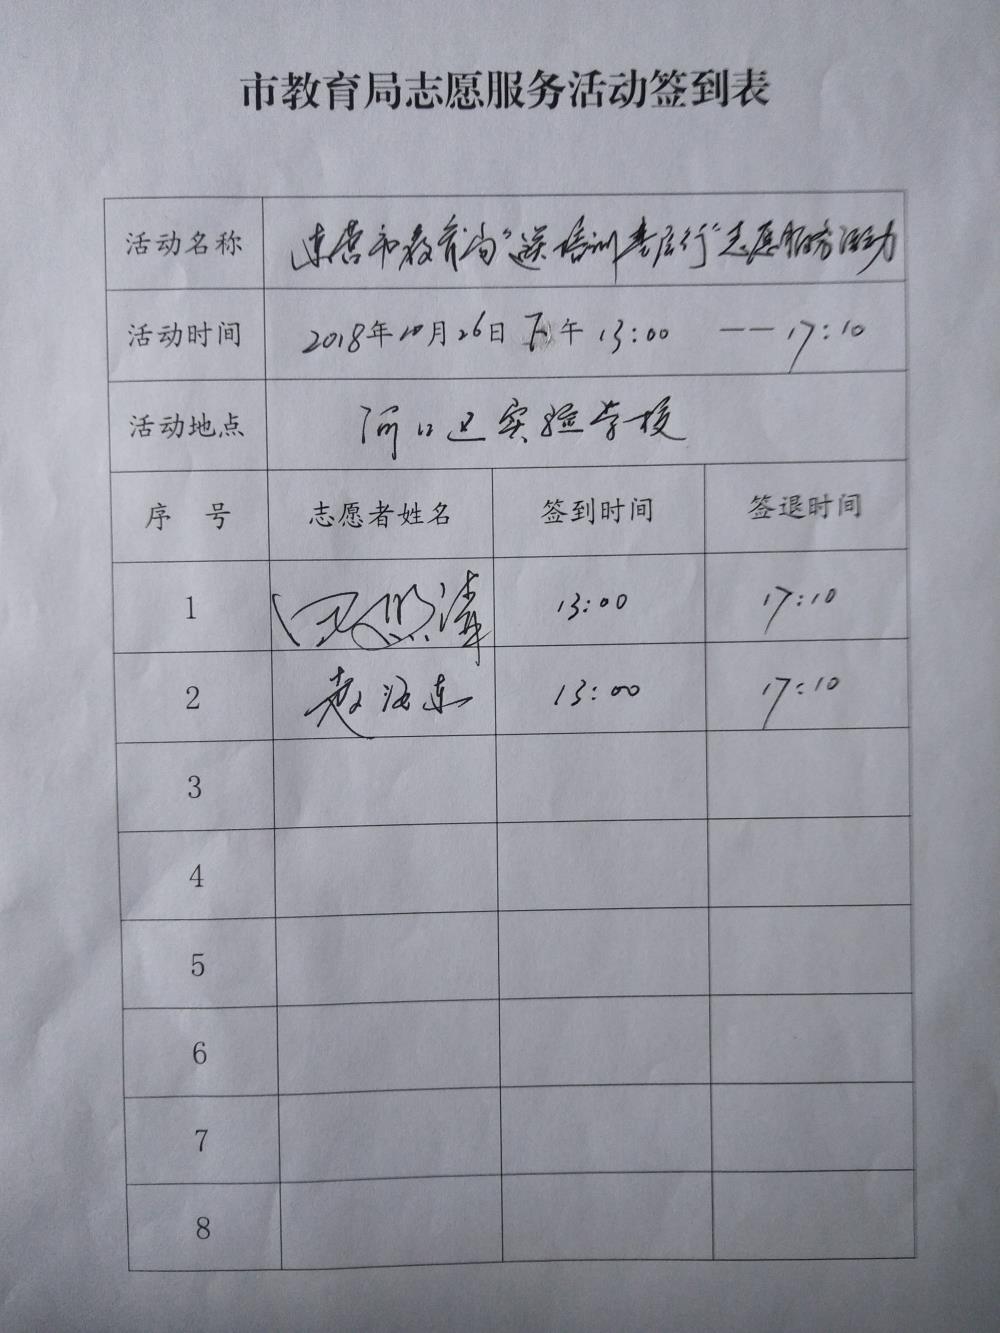 市教育局志愿服务活动签到表
活动名称 东营市教育局“送培训基层行”志愿服务活动
活动时间 2018年10月26日 下午 13:00 —— 17:10
活动地点 河口区实验学校
序 号 志愿者姓名 签到时间 签退时间
1 13:00 17:10
2 赵海东 13:00 17:10
3
4
5
6
7
8